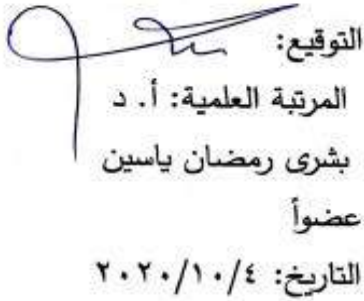 التوقيع:
المرتبة العلمية: أ. د
بشرى رمضان ياسين
عضواً
التاريخ: ٢٠٢٠/١٠/٤